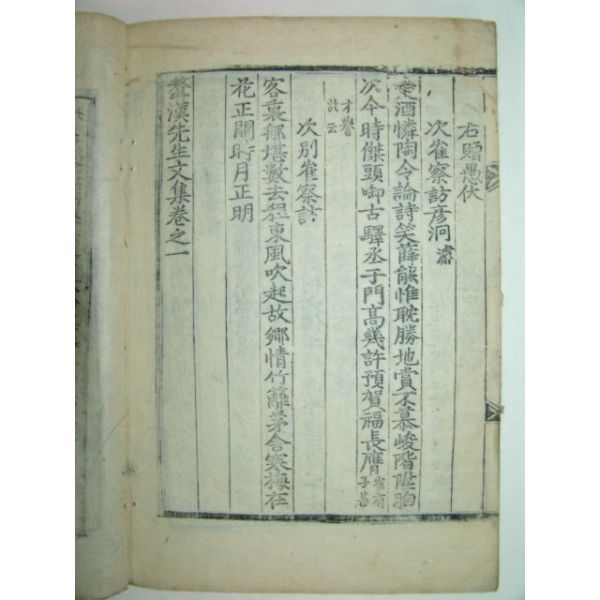 右贈愚伏
次崔察訪彦泂瀟
愛酒憐陶令論詩笑薛能惟耽勝地賞不慕峻階陞胸
次今時傑頭啣古驛丞于門高幾許預賀福長膺崔有子甚
才譽故云
次別崔察訪
客裏那堪數去程東風吹起故鄕情竹籬茅舍寒梅在
花正開時月正明
鰲漢先生文集卷之一